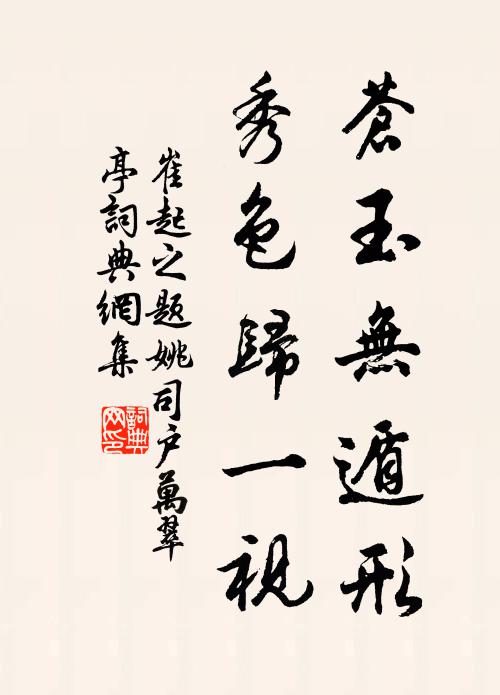 蒼玉無遁形
秀色歸一視
崔起之題姚司户萬翠
亭詞典網集
詞典网印